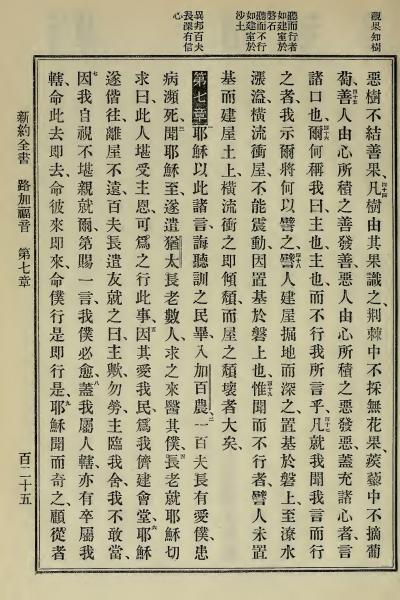 觀果知樹
聽而行者
如建室於
磐石
聽而不行
如建室於
沙土
異邦百夫
長深有信
心
惡樹不結善果、凡樹由其果識之、荊棘中不採無花果、蒺藜中不摘葡
萄、善人由心所積之善發善、惡人由心所積之惡發惡、蓋充諸心者、言
諸口也、爾何稱我曰、主也主也、而不行我所言乎、凡就我聞我言而行
之者、我示爾將何以譬之、譬人建屋掘地而深之、置基於磐上、至潦水
漲溢、橫流衝屋、不能震動、因置基於磐上也、惟聞而不行者、譬人未置
基而建屋土上、橫流衝之卽傾頹、而屋之頹壞者大矣、
第七章 耶穌以此諸言、誨聽訓之民畢、入加百農、一百夫長有愛僕、患
病瀕死、聞耶穌至、遂遣猶太長老數人、求之來醫其僕、長老就耶穌切
求曰、此人堪受主恩、可爲之行此事、因其愛我民、爲我儕建會堂、耶穌
遂偕往、離屋不遠、百夫長遣友就之曰、主歟、勿勞、主臨我舍、我不敢當、
因我自視不堪親就爾、第賜一言、我僕必愈、蓋我屬人轄、亦有卒屬我
轄、命此去卽去、命彼來卽來、命僕行是卽行是、耶穌聞而奇之、顧從者
新約全書 路加福音 第七章 百二十五